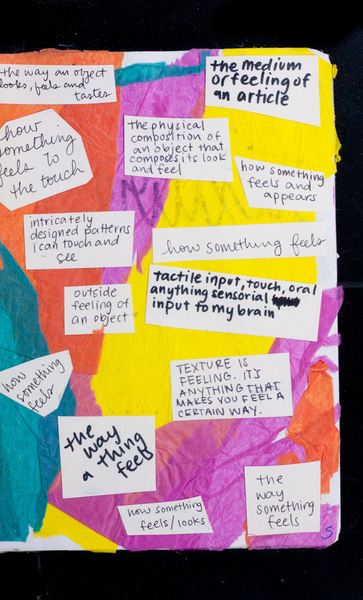 the way an object
looks, feels and
tastes
the medium
or feeling of
an article
how
something
feels to
the touch
the physical
composition of
an object that
composes its look
and feel
how something
feels and
appears
intricately
designed patterns
i can touch and
see
how something feels
tactile input, touch, oral
anything sensorial
input to my brain
outside
feeling of
an object
how
something
feels
TEXTURE IS
FEELING. IT'S
ANYTHING THAT
MAKES YOU FEEL A
CERTAIN WAY.
the
way
a thing
feels
how something
feels/looks
the
way
something
feels
5